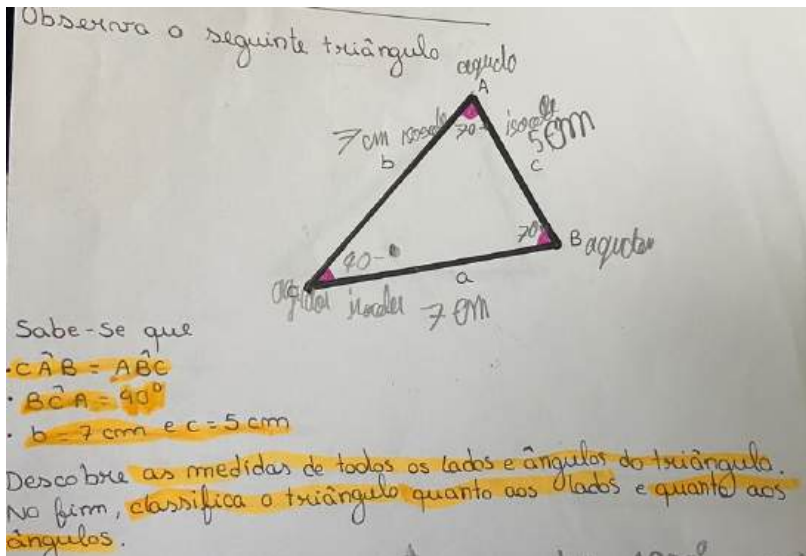 Observa o seguinte triângulo
agudo
A
7 cm isosele
70º
5 cm
b
c
70º
B agudo
40º
a
7 cm
Sabe-se que
· CÂB = AB̂C
· BĈA = 40º
· b = 7 cm e c = 5 cm
Descobre as medidas de todos os lados e ângulos do triângulo.
No fim, classifica o triângulo quanto aos lados e quanto aos
ângulos.